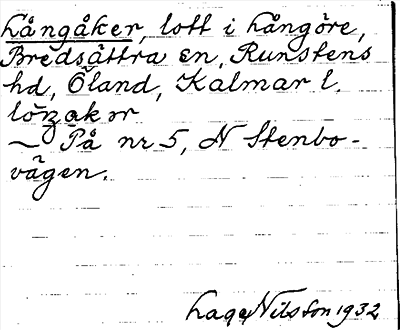 Långåker, lott i Långöre,
Bredsättra sn, Runstens
hd, Öland, Kalmar l.
På nr 5, N Stenbo-
vägen.
Lage Nilsson 1932